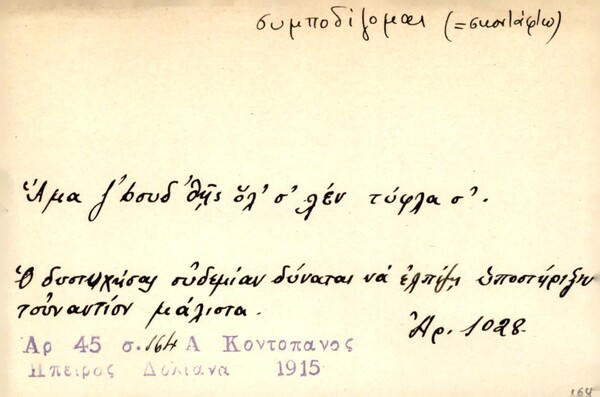 συμποδίζομαι (=σκοντάφτω)
Ἅμα ὅλ' σ' λέν τύφλα σ'.
Ὁ δυστυχήσας οὐδεμίαν δύναται νά ἐλπίζῃ ὑποστήριξιν
τοὐναντίον μάλιστα.
Ἀρ. 1028.
Αρ 45 σ. 164 Α Κοντοπανος
Ηπειρος Δολιανα 1915
164